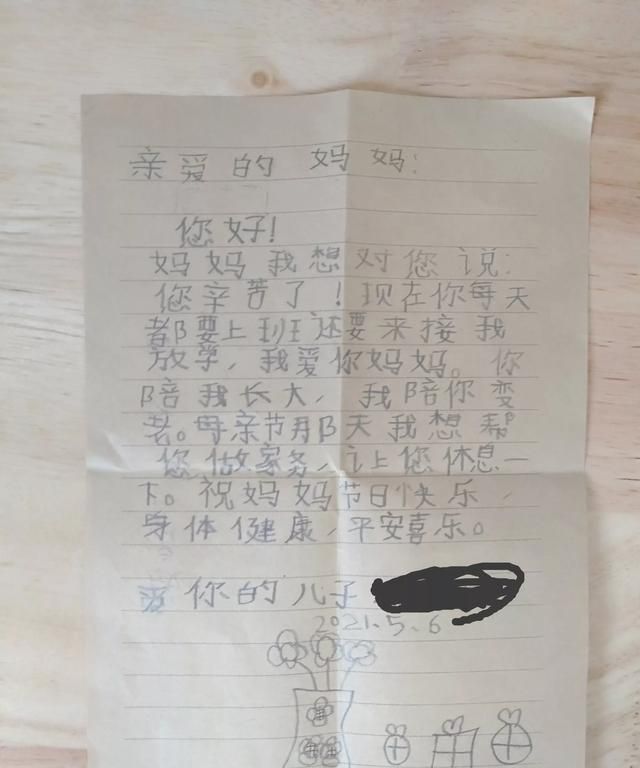 亲爱的妈妈:
您好!
妈妈我想对您说:
您辛苦了!现在你每天
都要上班还要来接我
放学,我爱你妈妈。你
陪我长大,我陪你变
老。母亲节那天我想帮
您做家务,让您休息一
下。祝妈妈节日快乐,
身体健康,平安喜乐。
爱你的儿子
2021.5.6